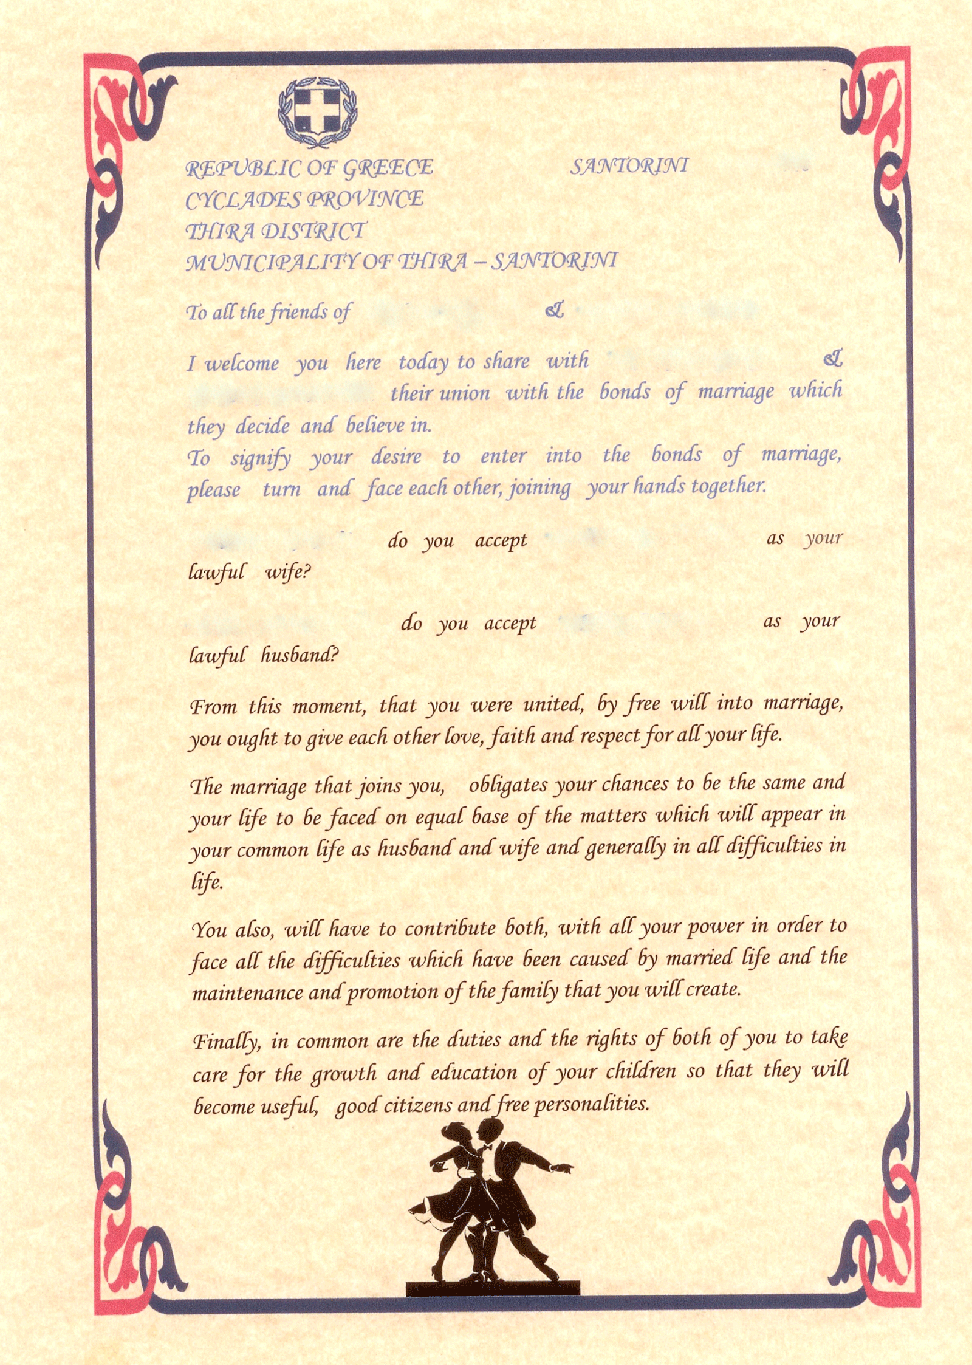 REPUBLIC OF GREECE SANTORINI
CYCLADES PROVINCE
THIRA DISTRICT
MUNICIPALITY OF THIRA – SANTORINI
To all the friends of &
I welcome you here today to share with &
their union with the bonds of marriage which
they decide and believe in.
To signify your desire to enter into the bonds of marriage,
please turn and face each other, joining your hands together.
do you accept as your
lawful wife?
do you accept as your
lawful husband?
From this moment, that you were united, by free will into marriage,
you ought to give each other love, faith and respect for all your life.
The marriage that joins you, obligates your chances to be the same and
your life to be faced on equal base of the matters which will appear in
your common life as husband and wife and generally in all difficulties in
life.
You also, will have to contribute both, with all your power in order to
face all the difficulties which have been caused by married life and the
maintenance and promotion of the family that you will create.
Finally, in common are the duties and the rights of both of you to take
care for the growth and education of your children so that they will
become useful, good citizens and free personalities.